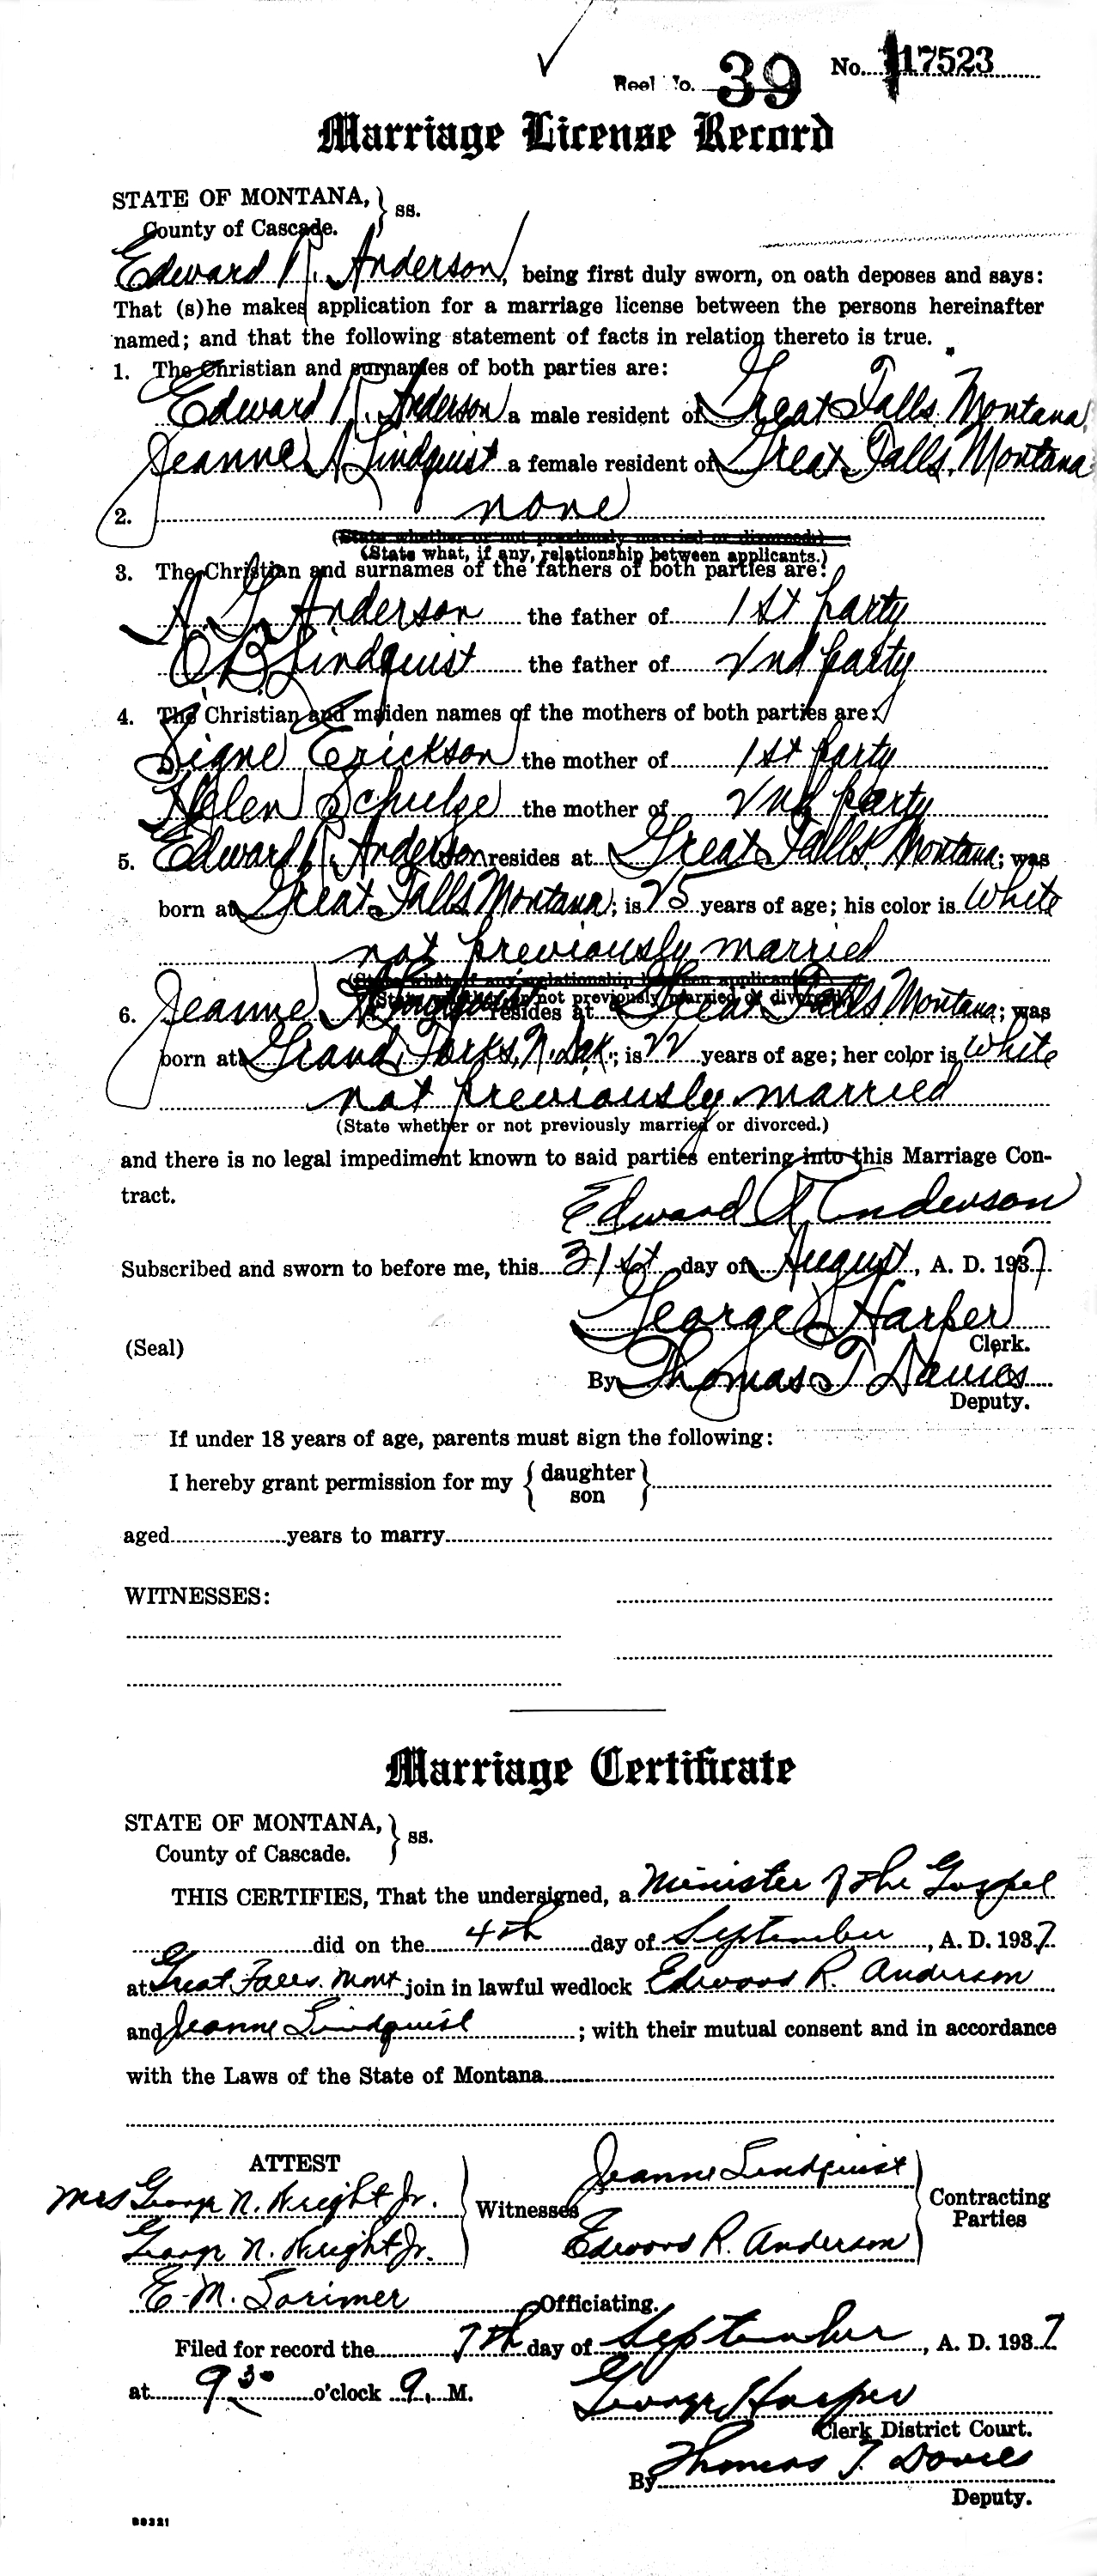 Reel No. 39 No. 17523
Marriage License Record
STATE OF MONTANA, } ss.
County of Cascade.
Edward R. Anderson, being first duly sworn, on oath deposes and says:
That (s)he makes application for a marriage license between the persons hereinafter
named; and that the following statement of facts in relation thereto is true.
1. The Christian and surnames of both parties are:
Edward R. Anderson a male resident of Great Falls, Montana
Jeanne A Lindquist a female resident of Great Falls, Montana
2. none
(State whether or not previously married or divorced.)
(State what, if any, relationship between applicants.)
3. The Christian and surnames of the fathers of both parties are:
A. G. Anderson the father of 1st party
O B Lindquist the father of 2nd party
4. The Christian and maiden names of the mothers of both parties are:
Signe Erickson the mother of 1st party
Helen Schulze the mother of 2nd party
5. Edward R. Anderson resides at Great Falls Montana; was
born at Great Falls Montana; is 25 years of age; his color is White
not previously married
(State what, if any, relationship between applicants.)
(State whether or not previously married or divorced.)
6. Jeanne A Lindquist resides at Great Falls Montana; was
born at Grand Forks, N. Dak.; is 22 years of age; her color is White
not previously married
(State whether or not previously married or divorced.)
and there is no legal impediment known to said parties entering into this Marriage Con-
tract.
Edward R Anderson
Subscribed and sworn to before me, this 31st day of August, A. D. 1937
George Harper
(Seal) Clerk.
By Thomas T Davies
Deputy.
If under 18 years of age, parents must sign the following:
I hereby grant permission for my { daughter son }
aged years to marry
WITNESSES:
Marriage Certificate
STATE OF MONTANA, } ss.
County of Cascade.
THIS CERTIFIES, That the undersigned, a Minister of the Gospel
did on the 4th day of September, A. D. 1937
at Great Falls, Mont join in lawful wedlock Edward R. Anderson
and Jeanne Lindquist; with their mutual consent and in accordance
with the Laws of the State of Montana
ATTEST
Jeanne Lindquist
Mrs George N. Wright Jr. } Witnesses } Contracting Parties
George N. Wright Jr. Edward R. Anderson
E. M. Lorimer Officiating.
Filed for record the 7th day of September, A. D. 1937
at 9 30 o'clock 9. M.
George Harper
Clerk District Court.
By Thomas T. Davies
Deputy.